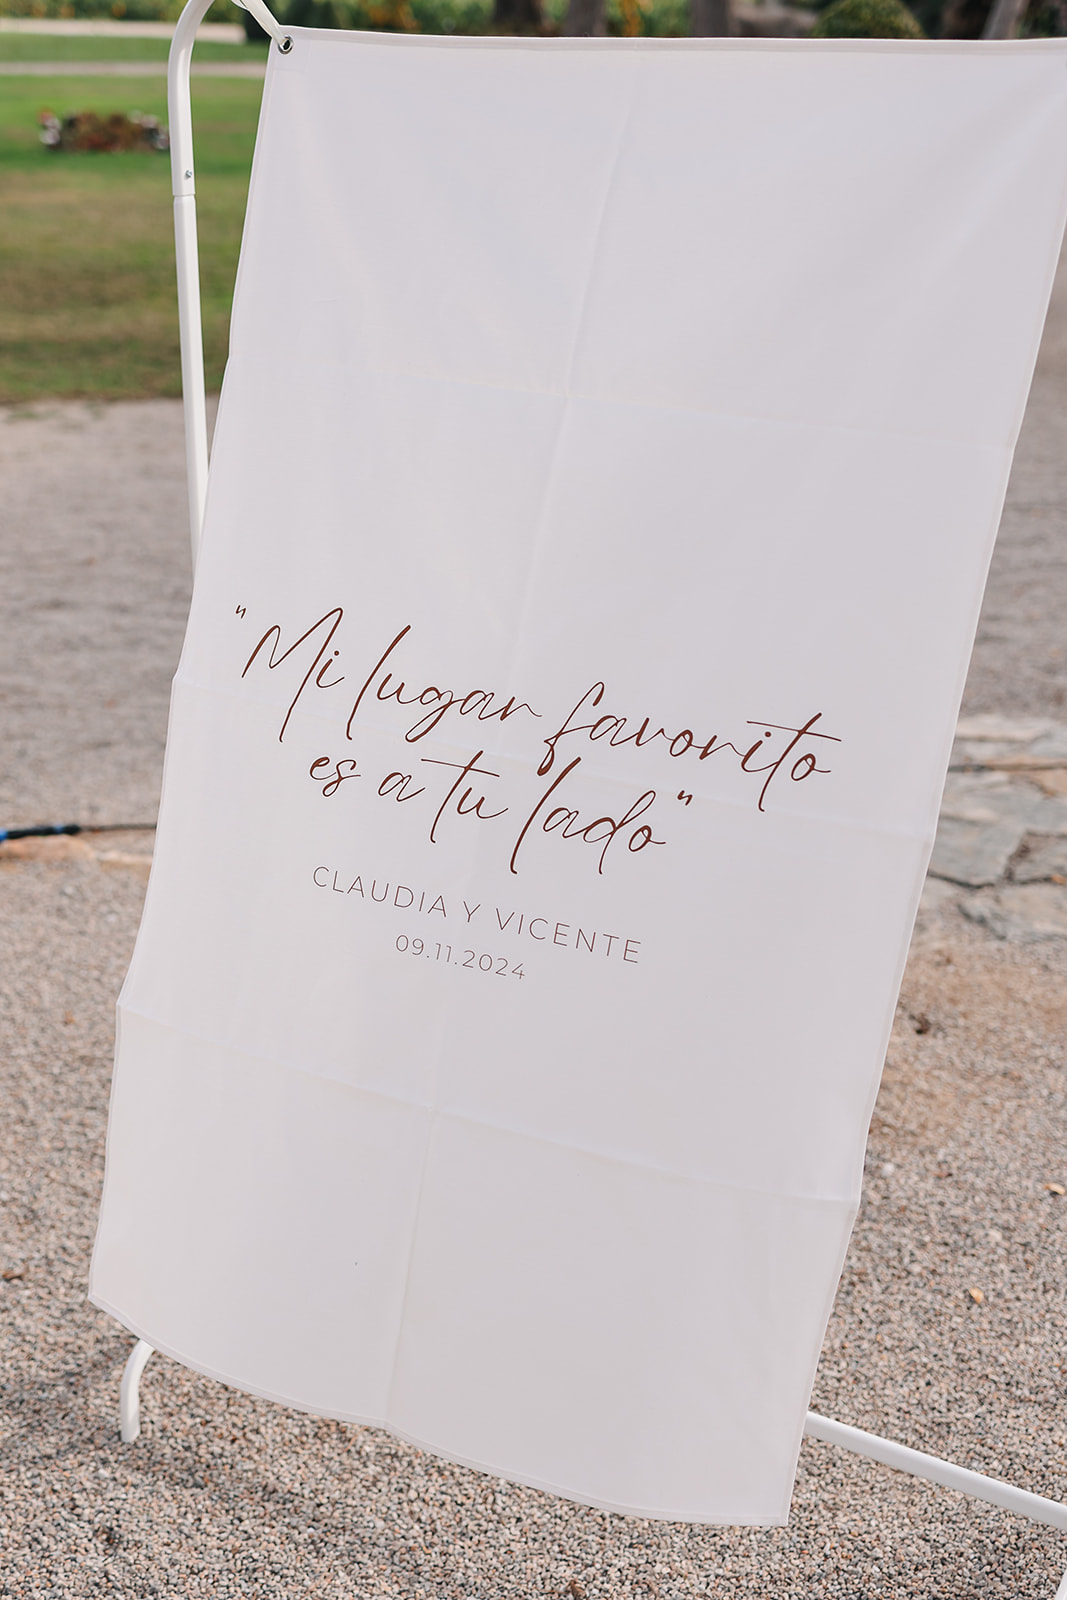 "Mi lugar favorito
es a tu lado"
CLAUDIA Y VICENTE
09.11.2024